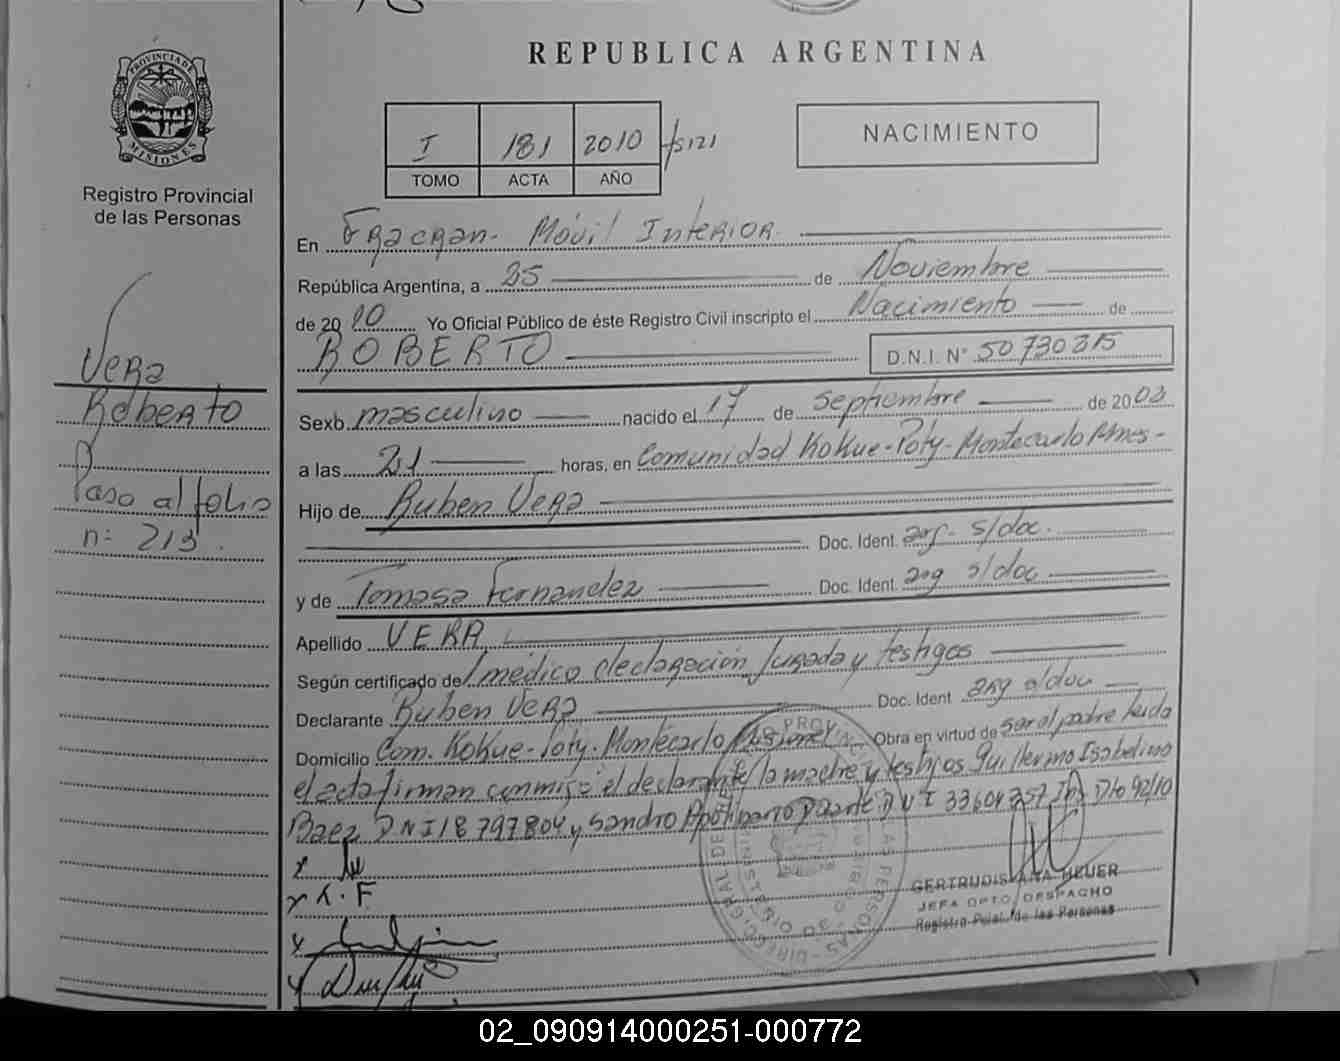 PROVINCIA DE
MISIONES
Registro Provincial
de las Personas
Vera
Roberto
Paso al folio
n: 213.
REPUBLICA ARGENTINA
I 181 2010 fs121
TOMO ACTA AÑO
NACIMIENTO
En Fracran - Móvil Interior
República Argentina, a 25 de Noviembre
de 20 10 Yo Oficial Público de éste Registro Civil inscripto el Nacimiento de
ROBERTO D.N.I. N° 50 730 315
Sexo masculino nacido el 17 de Septiembre de 2003
a las 21 horas, en Comunidad Kokue-Poty-Montecarlo Mnes-
Hijo de Ruben Vera
Doc. Ident. arg. s/doc.
y de Tomasa Fernandez Doc. Ident. arg s/doc
Apellido VERA
Según certificado de / médico declaración jurada y testigos
Declarante Ruben Vera Doc. Ident. arg s/doc
Domicilio Com. Kokue-Poty-Montecarlo Misiones Obra en virtud de ser el padre Leida
el acta firman conmigo el declarante, la madre y testigos Guillermo Isabelino
Baez DNI 18 797 804 y Sandro Apolinario Duarte DNI 33604357 Dto 92/10
x
x T.F
GERTRUDIS ANA HEUER
JEFA DPTO. DESPACHO
Registro Pcial. de las Personas
x
x
02_090914000251-000772